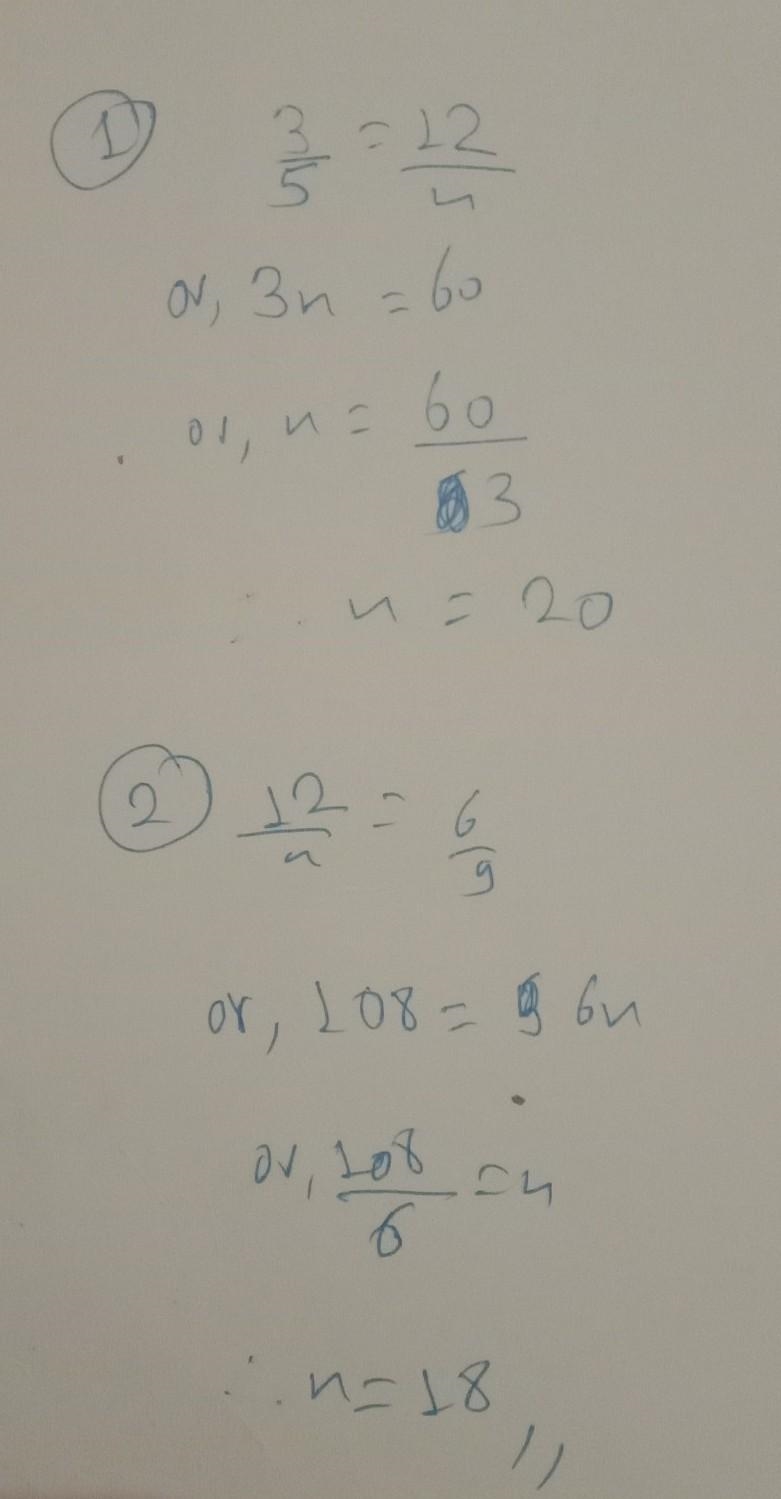 ① 3/5 = 12/n
or, 3n = 60
or, n = 60/3
∴ n = 20
② 12/n = 6/9
or, 108 = 6n
or, 108/6 = n
∴ n = 18,,